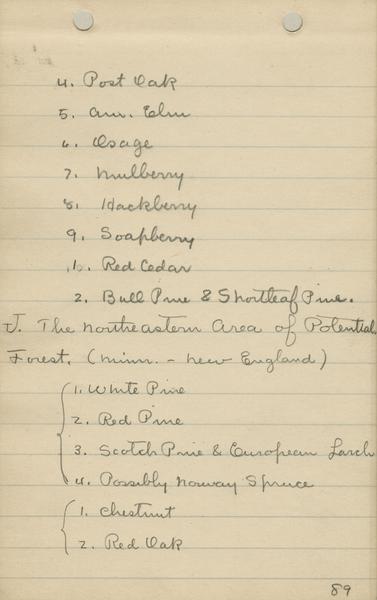 4. Post Oak
5. Am. Elm
6. Osage
7. Mulberry
8. Hackberry
9. Soapberry
1. Red Cedar
2. Bull Pine & Shortleaf Pine.
J. The northeastern area of Potential
Forest. (Minn. - New England)
1. White Pine
2. Red Pine
3. Scotch Pine & European Larch
4. Possibly Norway Spruce
1. Chestnut
2. Red Oak
89